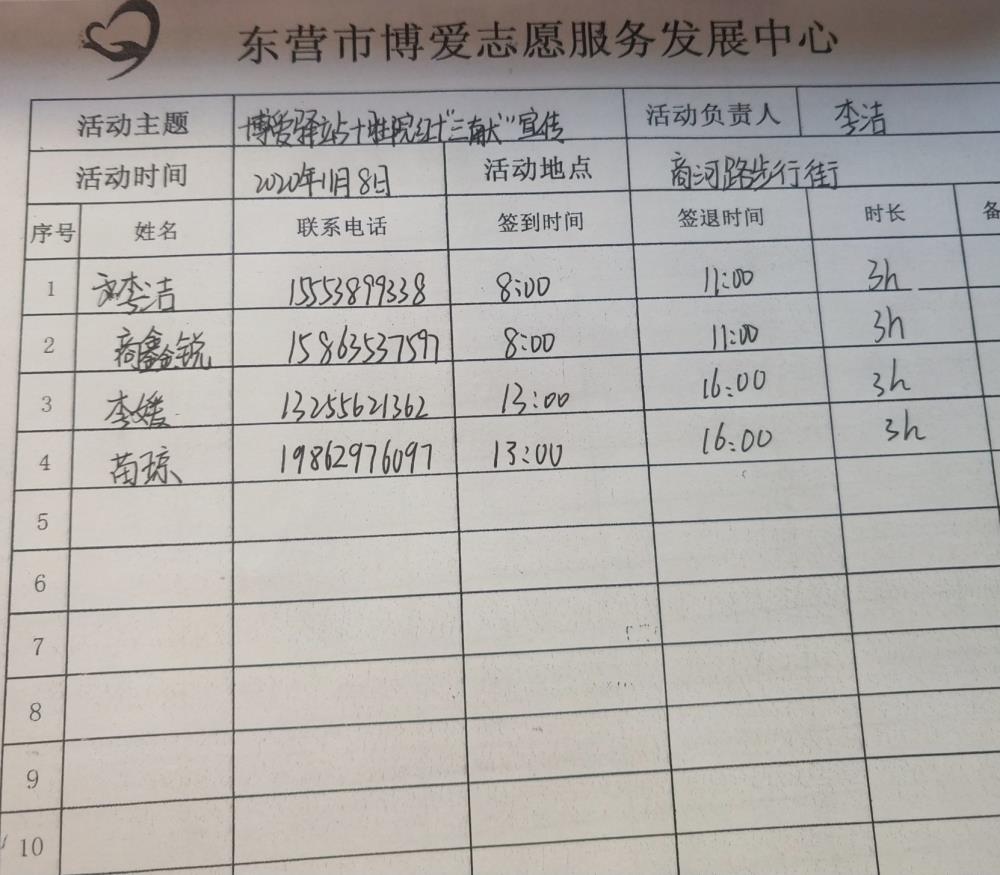 东营市博爱志愿服务发展中心
活动主题 博爱驿站十胜院红十"三献"宣传 活动负责人 李洁
活动时间 2020年11月8日 活动地点 商河路步行街
序号 姓名 联系电话 签到时间 签退时间 时长 备
1 李洁 15553899338 8:00 11:00 3h
2 商鑫锐 15863537597 8:00 11:00 3h
3 李媛 13255621362 13:00 16:00 3h
4 苗琼 19862976097 13:00 16:00 3h
5
6
7
8
9
10